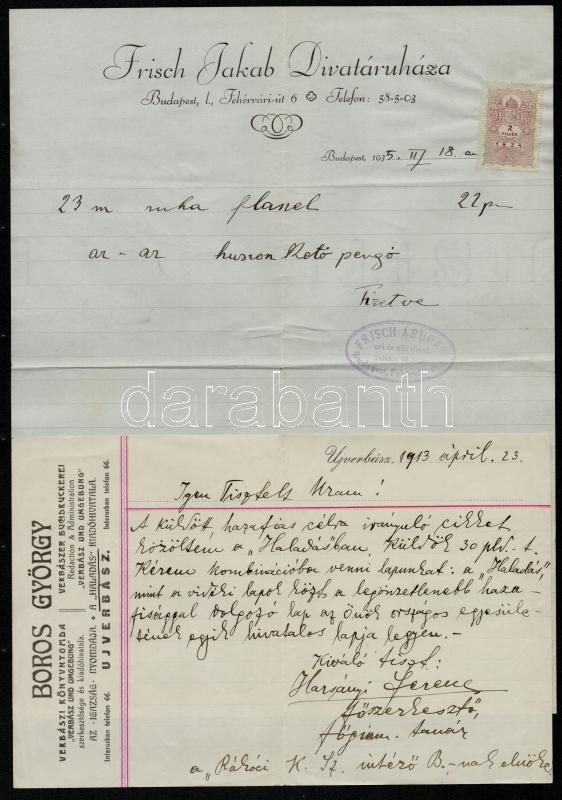 Frisch Jakab Divatáruháza
Budapest, I., Fehérvári-út 6 Telefon: 58-5-03
Budapest, 1935. II/ 18. án
2
FILLÉR
1934
23 m ruha flanel 22 p
az - az huszon Kető pengő
Fizetve
FRISCH ÁRUHÁ
uri és női divat
Telefon
Budapest,
darabanth
Ujverbász, 1913 április. 23.
Igen Tisztelt Uram!
A küldött hazafias célra irányuló cikket
közöltem a „Haladás"ban. Küldök 30 pld.-t.
Kérem kombinációba venni lapunkat: a „Haladás",
mint a vidéki lapok közt a legönzetlenebb haza-
fisággal dolgozó lap az Önök országos egyesüle-
tének egyik hivatalos lapja legyen.-
Kiváló tiszt:
Harsányi Ferenc
főszerkesztő,
főgimn. tanár
a „Rákóci K. Sz. intéző B.-nak elnöke
BOROS GYÖRGY
VERBÁSZI KÖNYVNYOMDA
„VERBÁSZ UND UMGEBUNG"
szerkesztősége és kiadóhivatala.
VERBÁSZER BUCHDRUCKEREI
Redaktion & Administration
„VERBÁSZ UND UMGEBUNG"
AZ „IGAZSÁG" NYOMDÁJA. • A „HALADÁS" KIADÓHIVATALA.
Interurban telefon 66. UJVERBÁSZ. Interurban telefon 66.